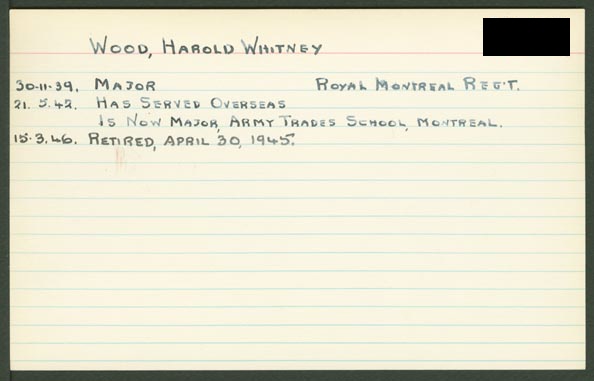 WOOD, HAROLD WHITNEY
30-11-39. MAJOR ROYAL MONTREAL REG'T.
21. 5.42. HAS SERVED OVERSEAS
IS NOW MAJOR, ARMY TRADES SCHOOL, MONTREAL.
15.3.46. RETIRED, APRIL 30, 1945.